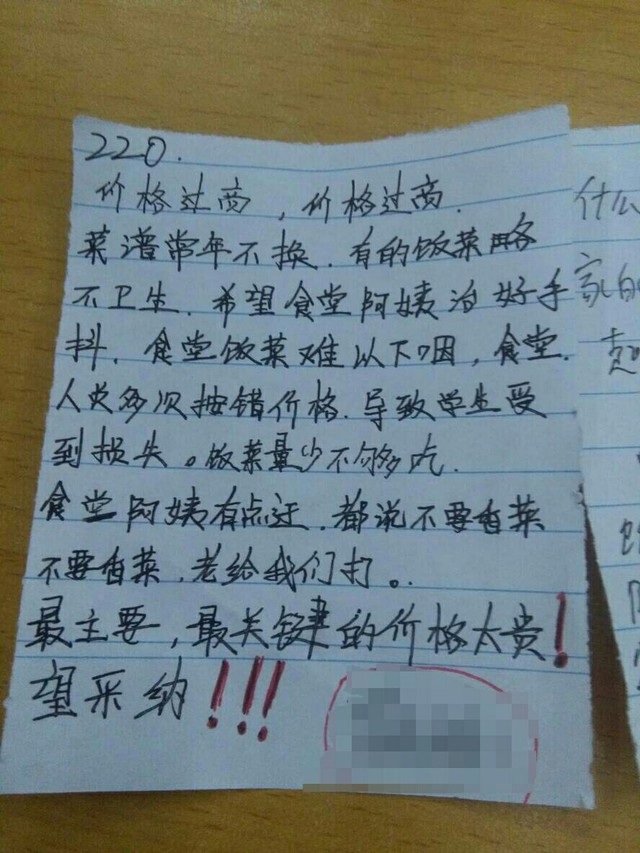 220.
价格过高，价格过高.
菜谱常年不换.有的饭菜略
不卫生.希望食堂阿姨治好手
抖.食堂饭菜难以下咽,食堂.
人员多次按错价格.导致学生受
到损失。饭菜量少不够吃.
食堂阿姨有点迂.都说不要香菜
不要香菜.老给我们打。.
最主要,最关键的价格太贵!
望采纳!!!
什么
家的